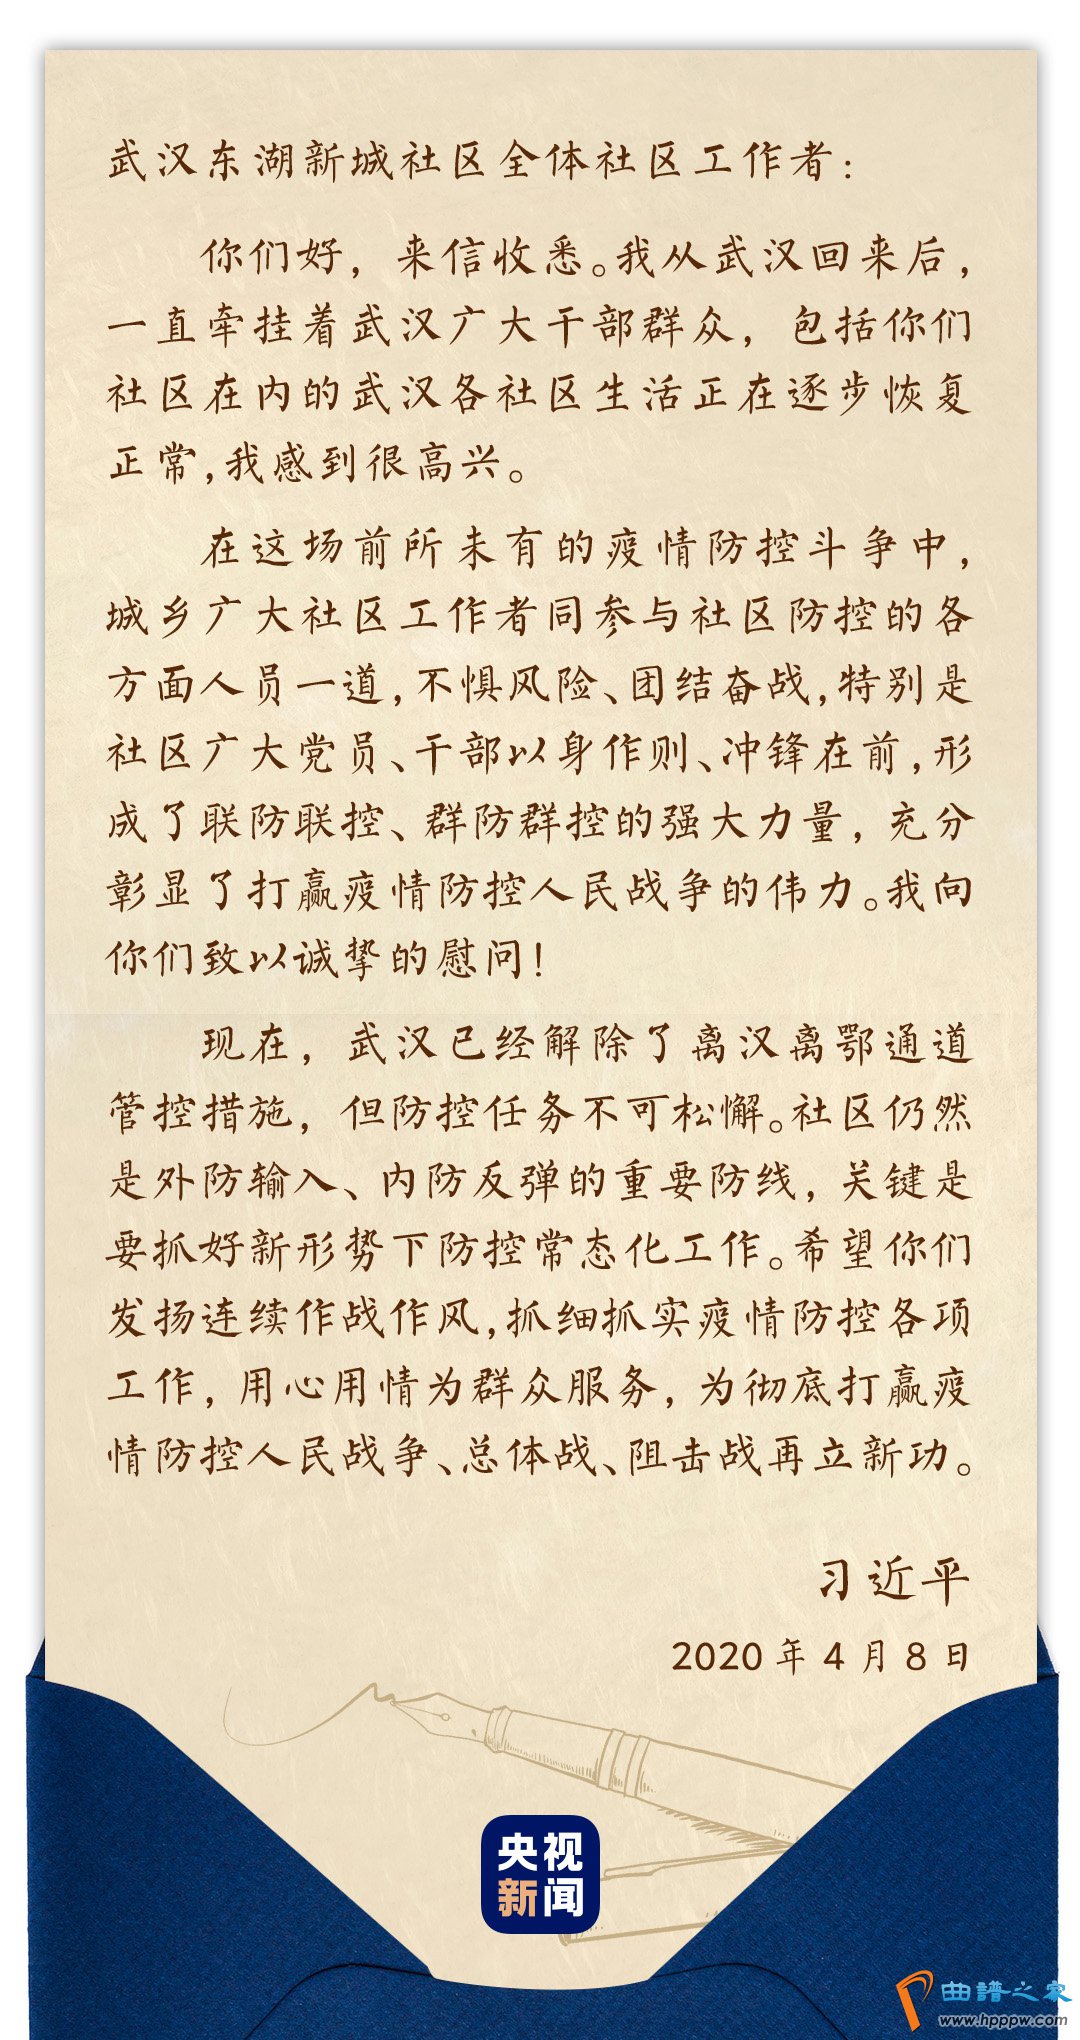 武汉东湖新城社区全体社区工作者：
你们好，来信收悉。我从武汉回来后，
一直牵挂着武汉广大干部群众，包括你们
社区在内的武汉各社区生活正在逐步恢复
正常，我感到很高兴。
在这场前所未有的疫情防控斗争中，
城乡广大社区工作者同参与社区防控的各
方面人员一道，不惧风险、团结奋战，特别是
社区广大党员、干部以身作则、冲锋在前，形
成了联防联控、群防群控的强大力量，充分
彰显了打赢疫情防控人民战争的伟力。我向
你们致以诚挚的慰问！
现在，武汉已经解除了离汉离鄂通道
管控措施，但防控任务不可松懈。社区仍然
是外防输入、内防反弹的重要防线，关键是
要抓好新形势下防控常态化工作。希望你们
发扬连续作战作风，抓细抓实疫情防控各项
工作，用心用情为群众服务，为彻底打赢疫
情防控人民战争、总体战、阻击战再立新功。
习近平
2020年4月8日
央视
新闻
曲谱之家
www.hpppw.com